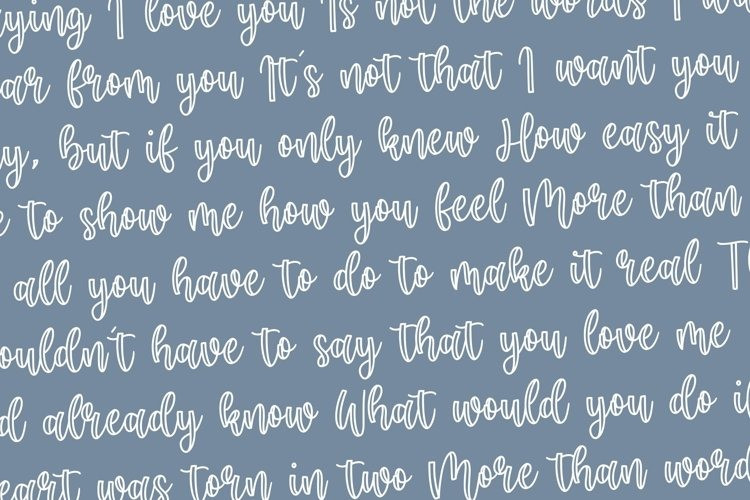 ying I love you Is not the words I wa
ar from you It's not that I want you
y, but if you only knew How easy it
e to show me how you feel More than
all you have to do to make it real Th
ouldn't have to say that you love me
d already know What would you do i
eart was torn in two More than word